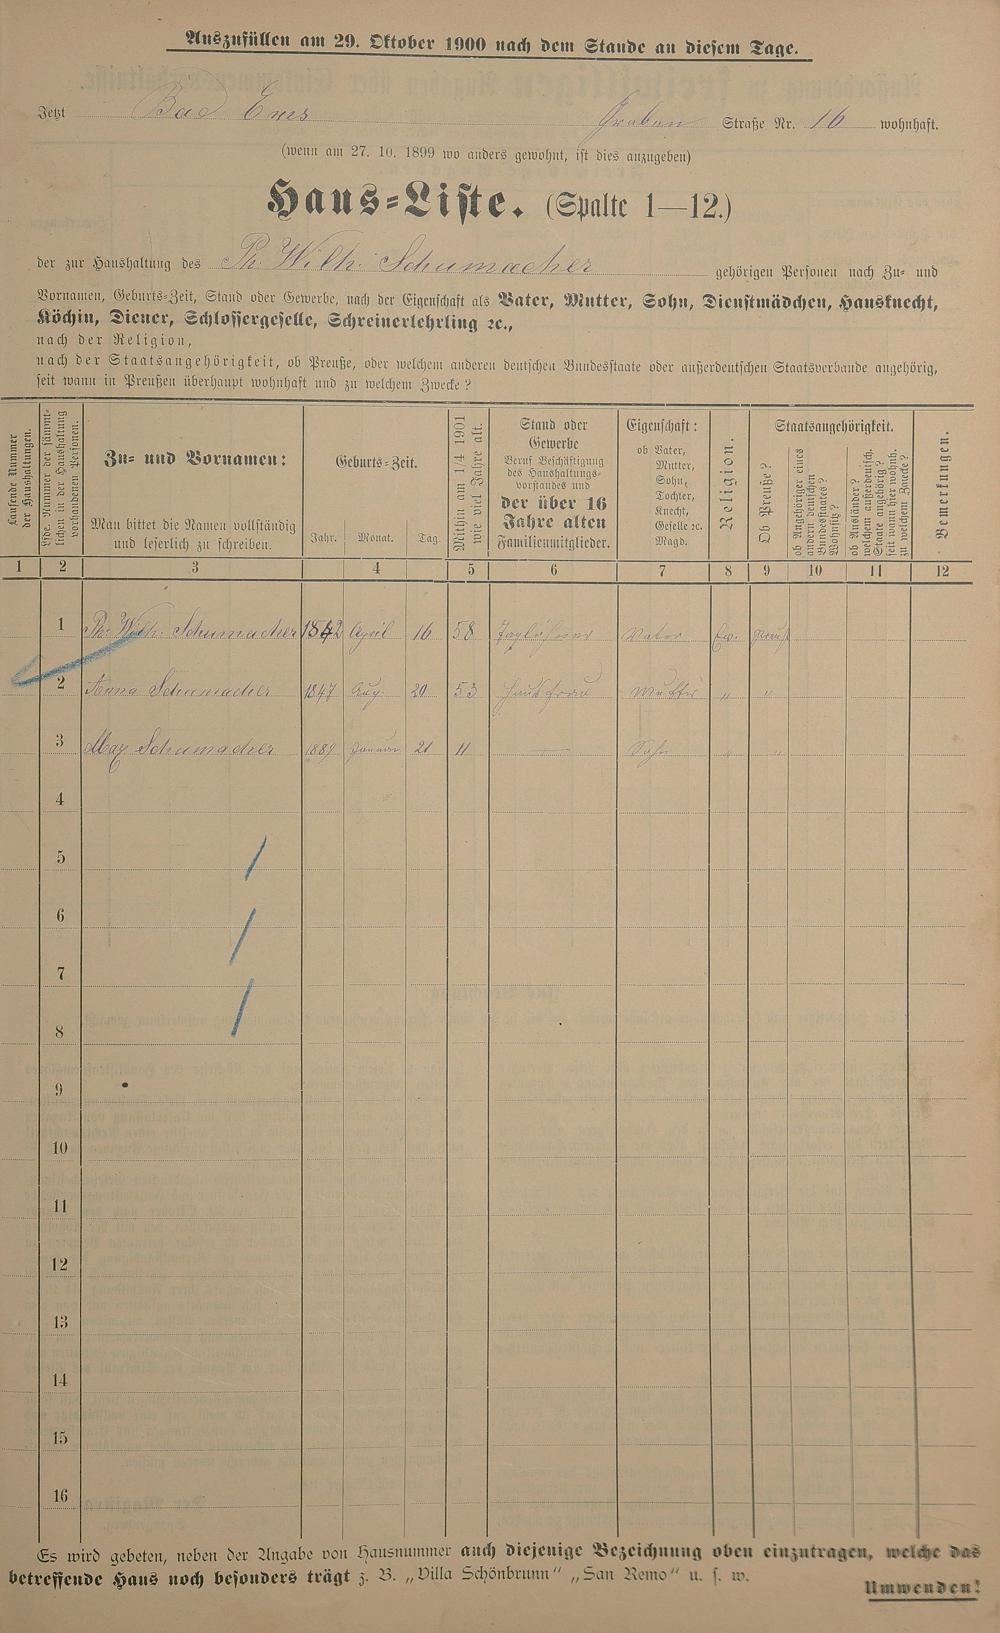 Auszufüllen am 29. Oktober 1900 nach dem Stande an diesem Tage.
Jetzt Bad Ems Graben Straße Nr. 16 wohnhaft.
(wenn am 27. 10. 1899 wo anders gewohnt, ist dies anzugeben)
Haus-Liste. (Spalte 1—12.)
der zur Haushaltung des Ph. Wilh. Schumacher gehörigen Personen nach Zu- und
Vornamen, Geburts-Zeit, Stand oder Gewerbe, nach der Eigenschaft als Vater, Mutter, Sohn, Dienstmädchen, Hausknecht,
Köchin, Diener, Schlossergeselle, Schreinerlehrling ꝛc.,
nach der Religion,
nach der Staatsangehörigkeit, ob Preuße, oder welchem anderen deutschen Bundesstaate oder außerdeutschen Staatsverbande angehörig,
seit wann in Preußen überhaupt wohnhaft und zu welchem Zwecke?
Laufende Nummer
der Haushaltungen.
Lfde. Nummer der sämmt-
lichen in der Haushaltung
vorhandenen Personen.
Zu- und Vornamen:
Man bittet die Namen vollständig
und leserlich zu schreiben.
Geburts-Zeit.
Jahr. Monat. Tag.
Mithin am 1/4 1901
wie viel Jahre alt.
Stand oder
Gewerbe
Beruf Beschäftigung
des Haushaltungs-
vorstandes und
der über 16
Jahre alten
Familienmitglieder.
Eigenschaft:
ob Vater,
Mutter,
Sohn,
Tochter,
Knecht,
Geselle ꝛc.
Magd.
Religion.
Staatsangehörigkeit.
Ob Preuße?
ob Angehöriger eines
andern deutschen
Bundesstaates?
Wohnsitz?
ob Ausländer?
welchem außerdeutsch.
Staate angehörig?
seit wann hier wohnh.
zu welchem Zwecke?
Bemerkungen.
1 2 3 4 5 6 7 8 9 10 11 12
1 Ph. Wilh. Schumacher 1842 April 16 58 Taglöhner Vater Ev. Preuß
2 Anna Schumacher 1847 Aug. 20 53 Hausfrau Mutter " "
3 Max Schumacher 1889 Januar 21 11 — Sohn " "
4
5
6
7
8
9
10
11
12
13
14
15
16
Es wird gebeten, neben der Angabe von Hausnummer auch diejenige Bezeichnung oben einzutragen, welche das
betreffende Haus noch besonders trägt z. B. „Villa Schönbrunn" „San Remo" u. s. w.
Umwenden!